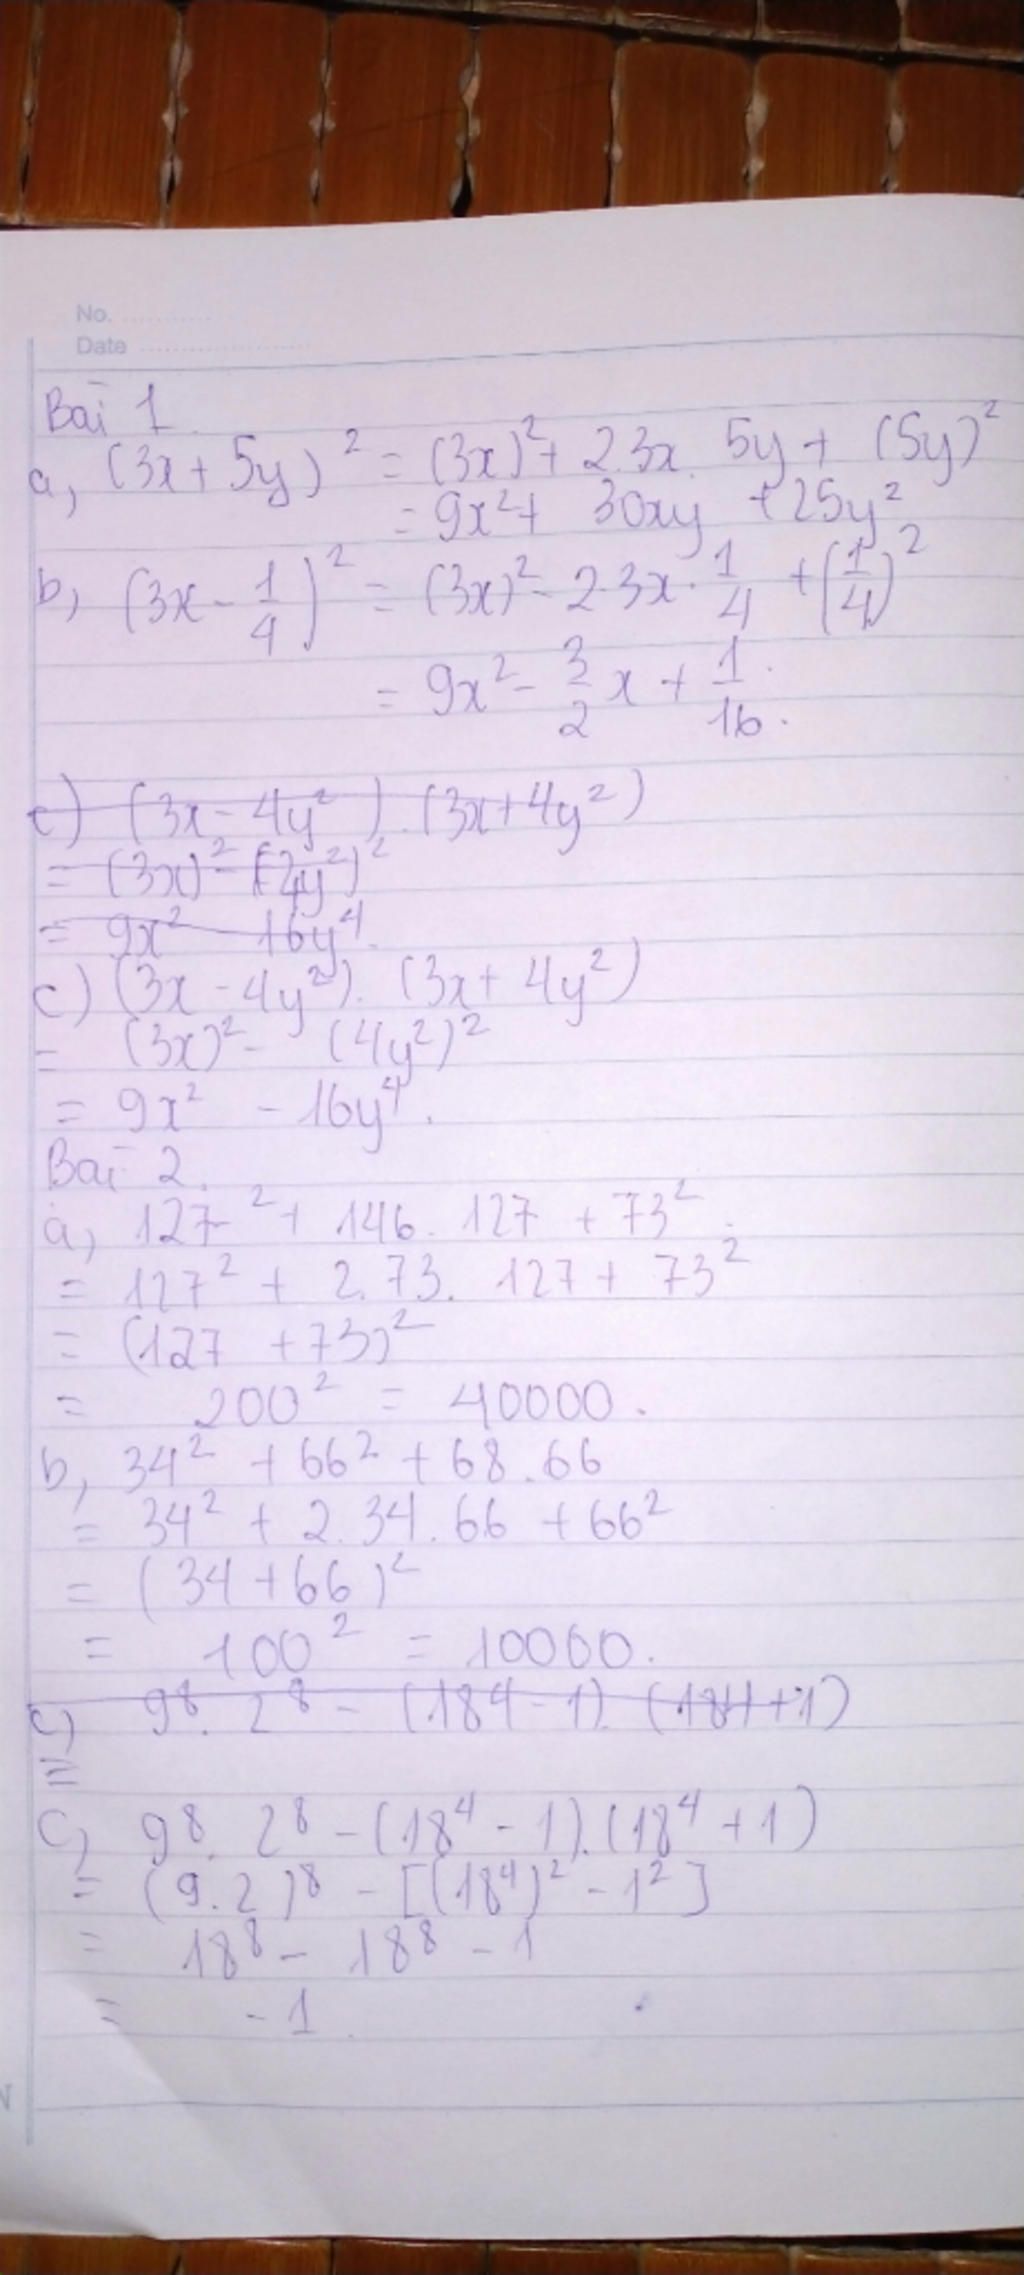 No. ............
Date ......................
Bài 1
a, (3x + 5y)² = (3x)² + 2.3x. 5y + (5y)²
= 9x² + 30xy + 25y²
b, (3x - 1/4)² = (3x)² - 2.3x . 1/4 + (1/4)²
= 9x² - 3/2 x + 1/16.
c) (3x - 4y²). (3x + 4y²)
= (3x)² - (4y²)²
= 9x² - 16y⁴.
c) (3x - 4y²). (3x + 4y²)
= (3x)² - (4y²)²
= 9x² - 16y⁴.
Bài 2.
a, 127² + 146. 127 + 73².
= 127² + 2. 73. 127 + 73²
= (127 + 73)²
= 200² = 40000.
b, 34² + 66² + 68.66
= 34² + 2.34.66 + 66²
= (34 + 66)²
= 100² = 10000.
c) 9⁸. 2⁸ - (184 - 1). (184 + 1)
=
c, 9⁸. 2⁸ - (18⁴ - 1). (18⁴ + 1)
= (9.2)⁸ - [(18⁴)² - 1²]
= 18⁸ - 18⁸ - 1
= -1.